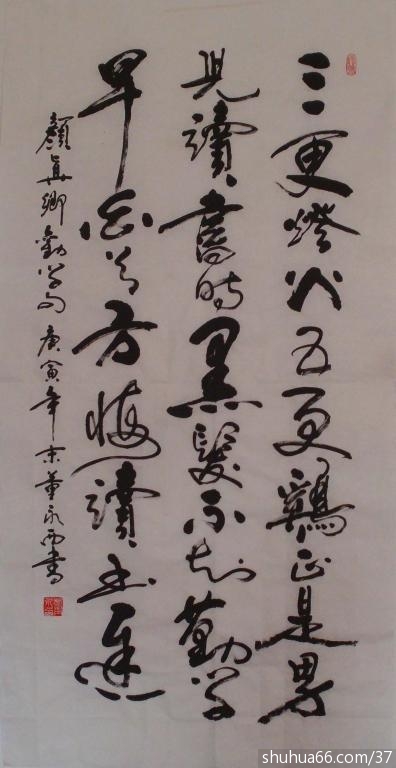 三更燈火五更鷄正是男
兒讀書時黑髮不知勤學
早白首方悔讀書遲
顏真卿勸學句庚寅年末董永西書
shuhua66.com/37